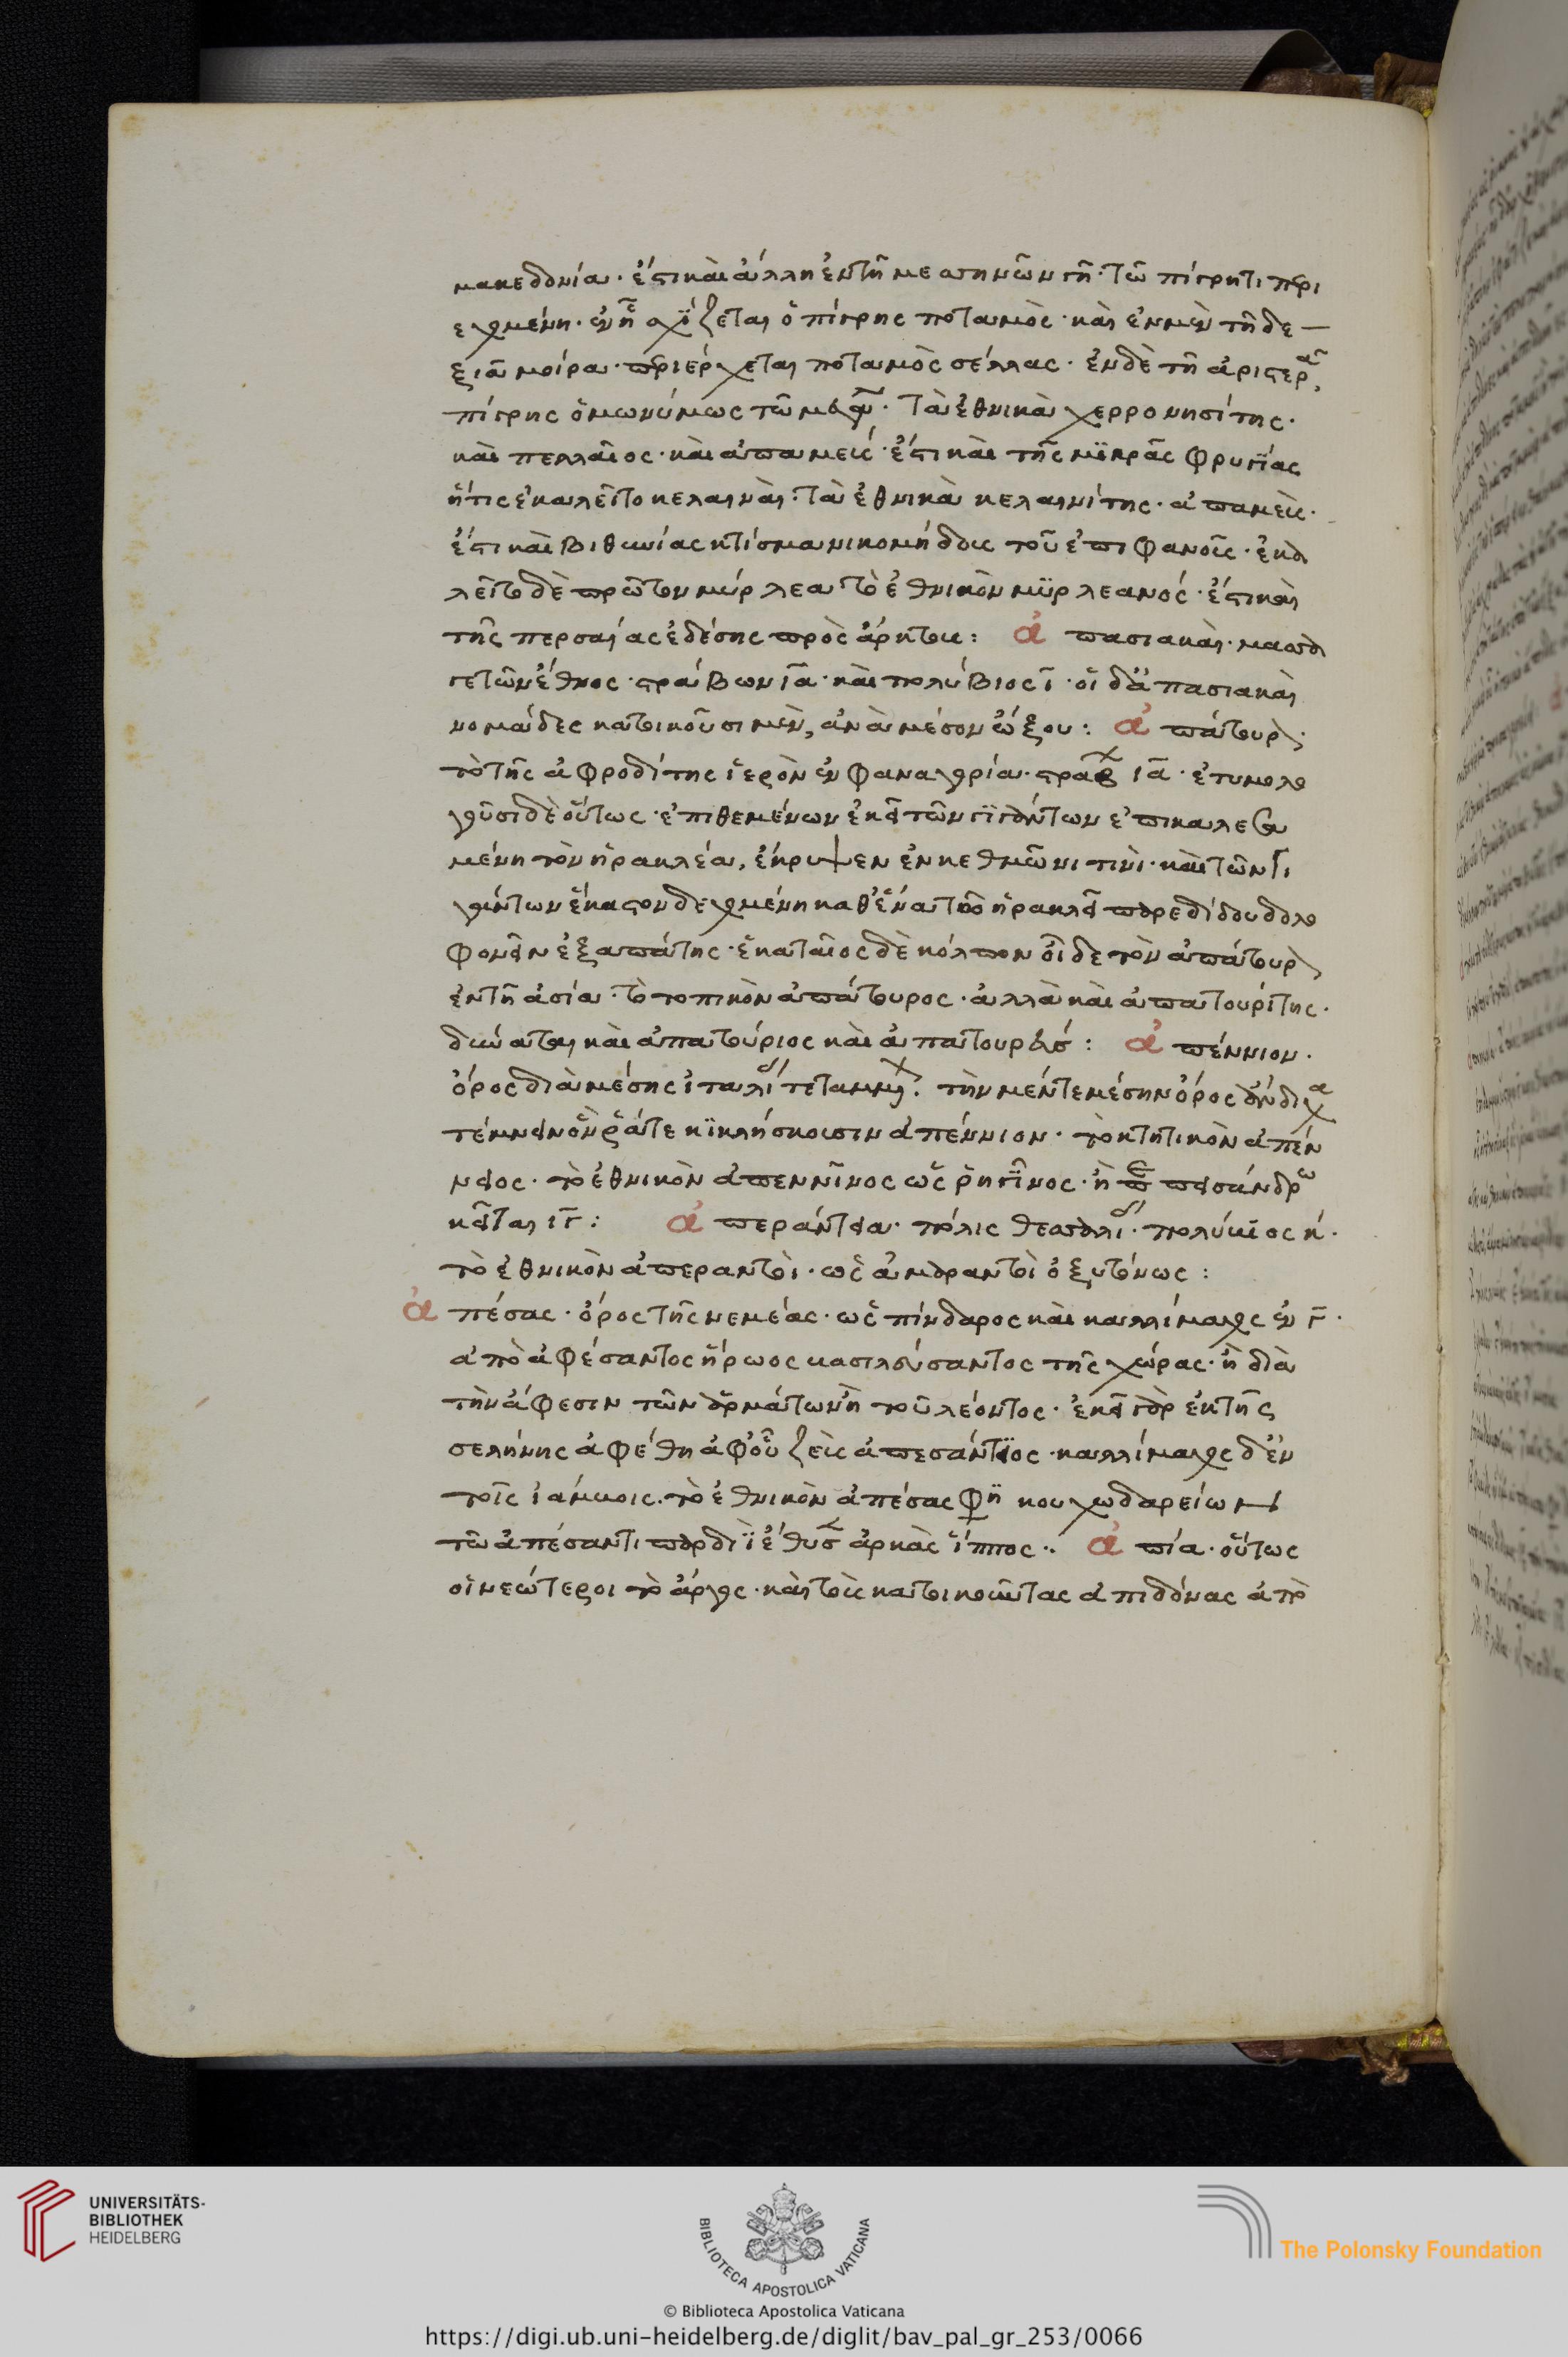 μακεδονία· ἔστι καὶ ἄλλη ἐν τῆ μεσηνῶν γῆ· τῶ τίγρητι περι
εχομένη· ἐν ἧ σχίζεται ὁ τίγρης ποταμός· καὶ ἐν μὲν τῆ δε
ξιᾶ μοίρα· περιέρχεται ποταμὸς σέλλας· ἐν δὲ τῆ ἀριστερᾶ,
τίγρης ὁμωνύμως τῶ μεγάλω. τὰ ἐθνικὰ χερρονησίτης·
καὶ πελλαῖος· καὶ ἀπαμεύς· ἔστι καὶ τῆς μϊκρᾶς φρυγίας
ἥτις ἐκαλεῖτο κελαιναί· τὰ ἐθνικὰ κελαινίτης· ἀπαμεύς·
ἔστι καὶ βιθυνίας κτίσμα νικομήδους τοῦ ἐπιφανοῦς· ἐκα
λεῖτο δὲ πρῶτον μύρλεα τὸ ἐθνικὸν μϋρλεανός· ἔστι καὶ
τῆς περσαίας ἐδέσης πρὸς ἄρκτους: ἀπασιακαί· μασσα
γετῶν ἔθνος· στράβων ια· καὶ πολύβιος ι· οἱ δ' ἀπασιακαὶ
νομάδες κατοικοῦσι μὲν, ἀνὰ μέσον ὤξου: ἀπάτουρον·
τὸ τῆς ἀφροδίτης ἱερὸν ἐν φαναγορία· στράβ ια· ἐτυμολο
γοῦσι δὲ οὕτως· ἐπιθεμένων ἐκεῖ τῶν γιγάντων ἐπικαλεσα
μένη τὸν ἡρακλέα, ἔκρυψεν ἐν κεθμῶνι τινί· καὶ τῶν γι
γάντων ἕκαστον δεχομένη καθ' ἕνα τῶ ἡρακλεῖ παρεδίδου δολο
φονεῖν ἐξ ἀπάτης· ἑκαταῖος δὲ κόλπον οἶδε τὸν ἀπάτουρον
ἐν τῆ ἀσία· τὸ τοπικὸν ἀπάτουρος· ἀλλὰ καὶ ἀπατουρίτης·
δύναται καὶ ἀπατούριος καὶ ἀπατουρεύς: ἀπέννιον·
ὄρος διὰ μέσης ἰταλίας τεταμμέν. τὴν μέν τε μέσην ὄρος ἄνδιχα
τέμνει ὀνρά τε κϊκλήσκοισιν ἀπέννιον· τὸ κτητικὸν ἀπέν
νειος· τὸ ἐθνικὸν ἀπεννῖνος ὡς ῥηγῖνος· ἢ πεισάνδρω
κεῖται ιγ: ἀπεράντεια· πόλις θεσσαλίας· πολύβιος κ·
τὸ ἐθνικὸν ἀπεραντοί· ὡς ἀμαραντοὶ ὀξυτόνως:
ἀπέσας· ὄρος τῆς νεμέας· ὡς πίνδαρος καὶ καλλίμαχος ἐν γ·
ἀπὸ ἀφέσαντος ἥρωος βασιλεύσαντος τῆς χώρας· ἢ διὰ
τὴν ἄφεσιν τῶν ἁρμάτων ἢ τοῦ λέοντος· ἐκεῖ γὰρ ἐκ τῆς
σελήνης ἀφέθη ἀφ' οὗ ζεὺς ἀπεσάντιος· καλλίμαχος δ' ἐν
τοῖς ἰάμβοις. τὸ ἐθνικὸν ἀπέσας φη κουχωδαρείων
τῶ ἀπέσαντι παρ διῒ ἔθυσ ἀρκὰς ἵππος·. ἀπία· οὕτως
οἱ νεώτεροι τὸ ἄργος· καὶ τοὺς κατοικοῦντας ἀπιδόνας ἀπὸ
UNIVERSITÄTS-
BIBLIOTHEK
HEIDELBERG
BIBLIOTECA APOSTOLICA VATICANA
The Polonsky Foundation
© Biblioteca Apostolica Vaticana
https://digi.ub.uni-heidelberg.de/diglit/bav_pal_gr_253/0066